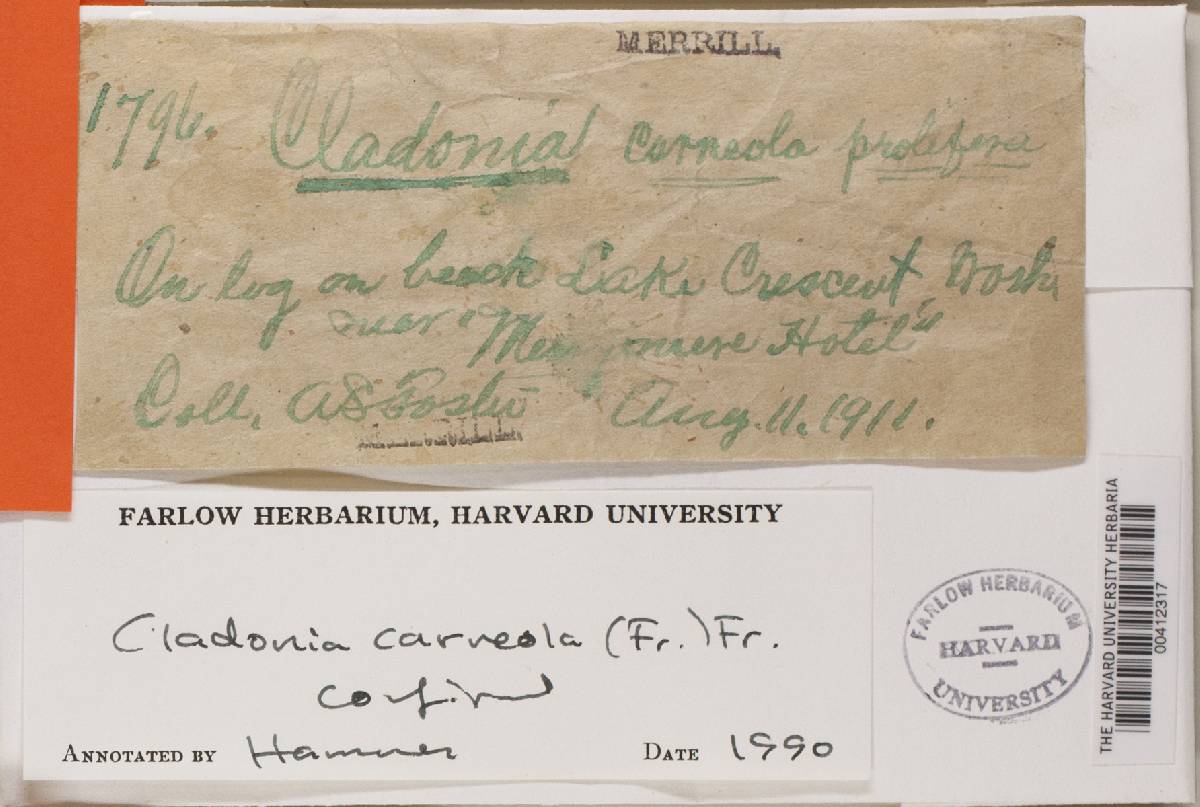 MERRILL.
1796. Cladonia carneola prolifera
On log on beach Lake Crescent, Wash.
near "Merrimere Hotel"
Coll. AS Foster Aug. 11. 1911.
MERRILL.
FARLOW HERBARIUM, HARVARD UNIVERSITY
Cladonia carneola (Fr.) Fr.
confirmed
ANNOTATED BY Hammer DATE 1990
FARLOW HERBARIUM
HARVARD
UNIVERSITY
THE HARVARD UNIVERSITY HERBARIA
00412317